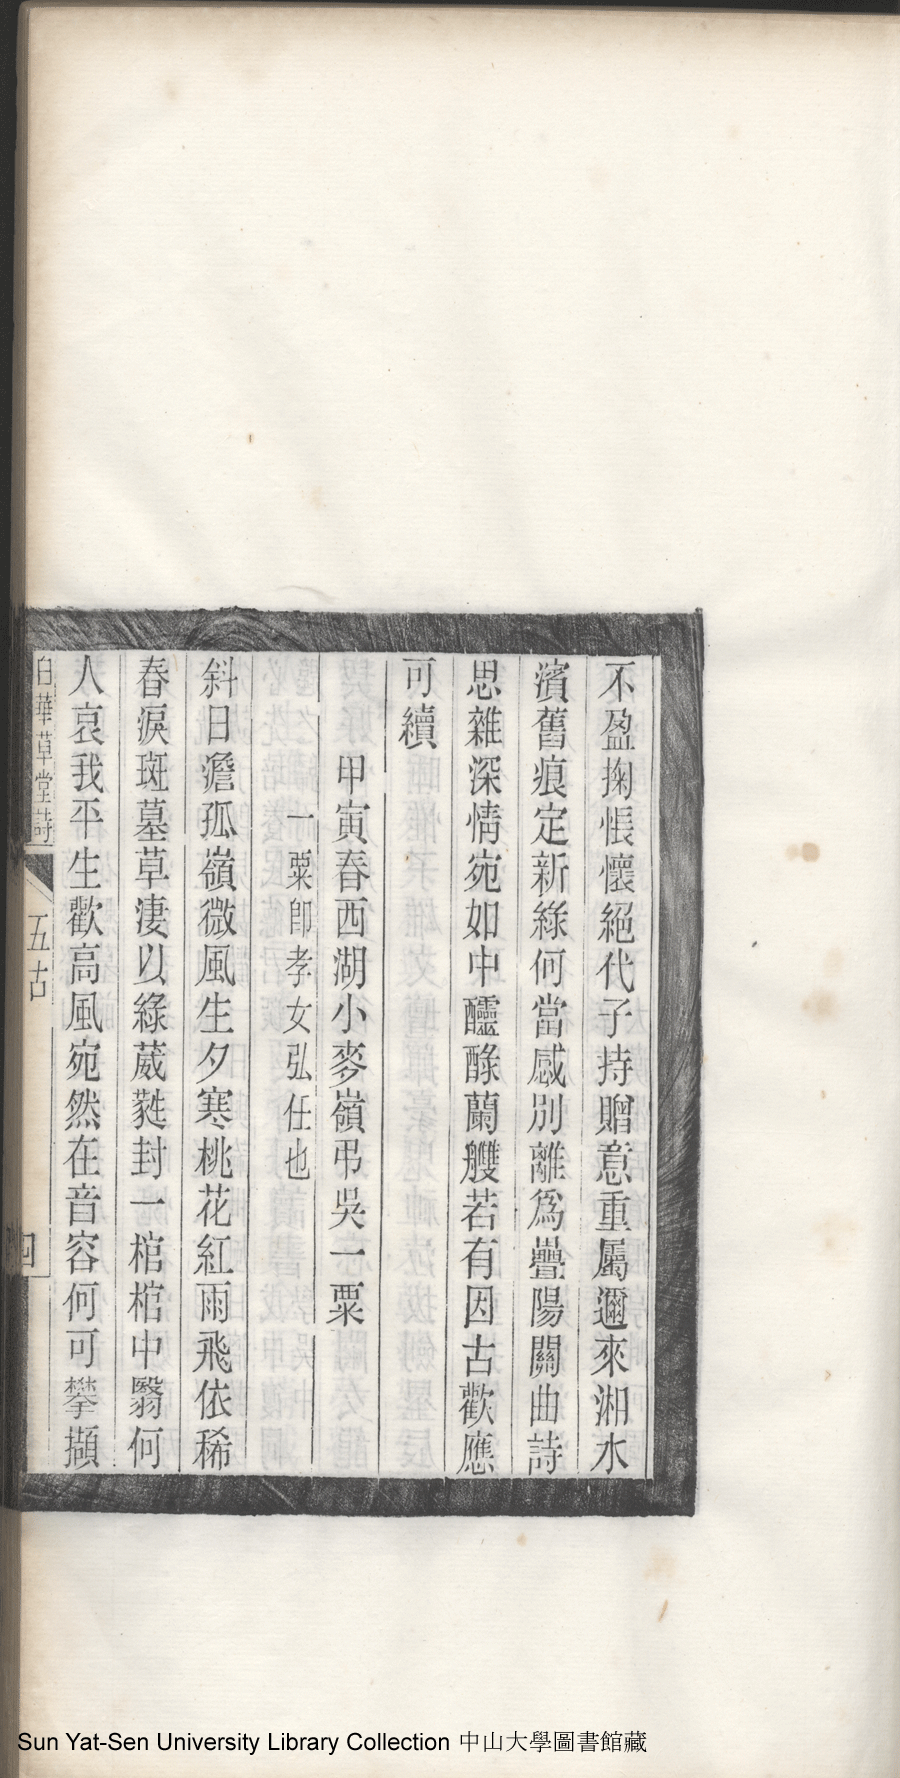 不盈掬悵懷絕代子持贈意重屬邇來湘水
濱舊痕定新綠何當感別離爲疊陽關曲詩
思雜深情宛如中醽醁蘭艭若有因古歡應
可續
甲寅春西湖小麥嶺弔吳一粟
一粟卽孝女弘任也
斜日澹孤嶺微風生夕寒桃花紅雨飛依稀
春淚斑墓草淒以綠葳蕤封一棺棺中翳何
人哀我平生歡高風宛然在音容何可攀擷
白華草堂詩 五古 四
Sun Yat-Sen University Library Collection 中山大學圖書館藏